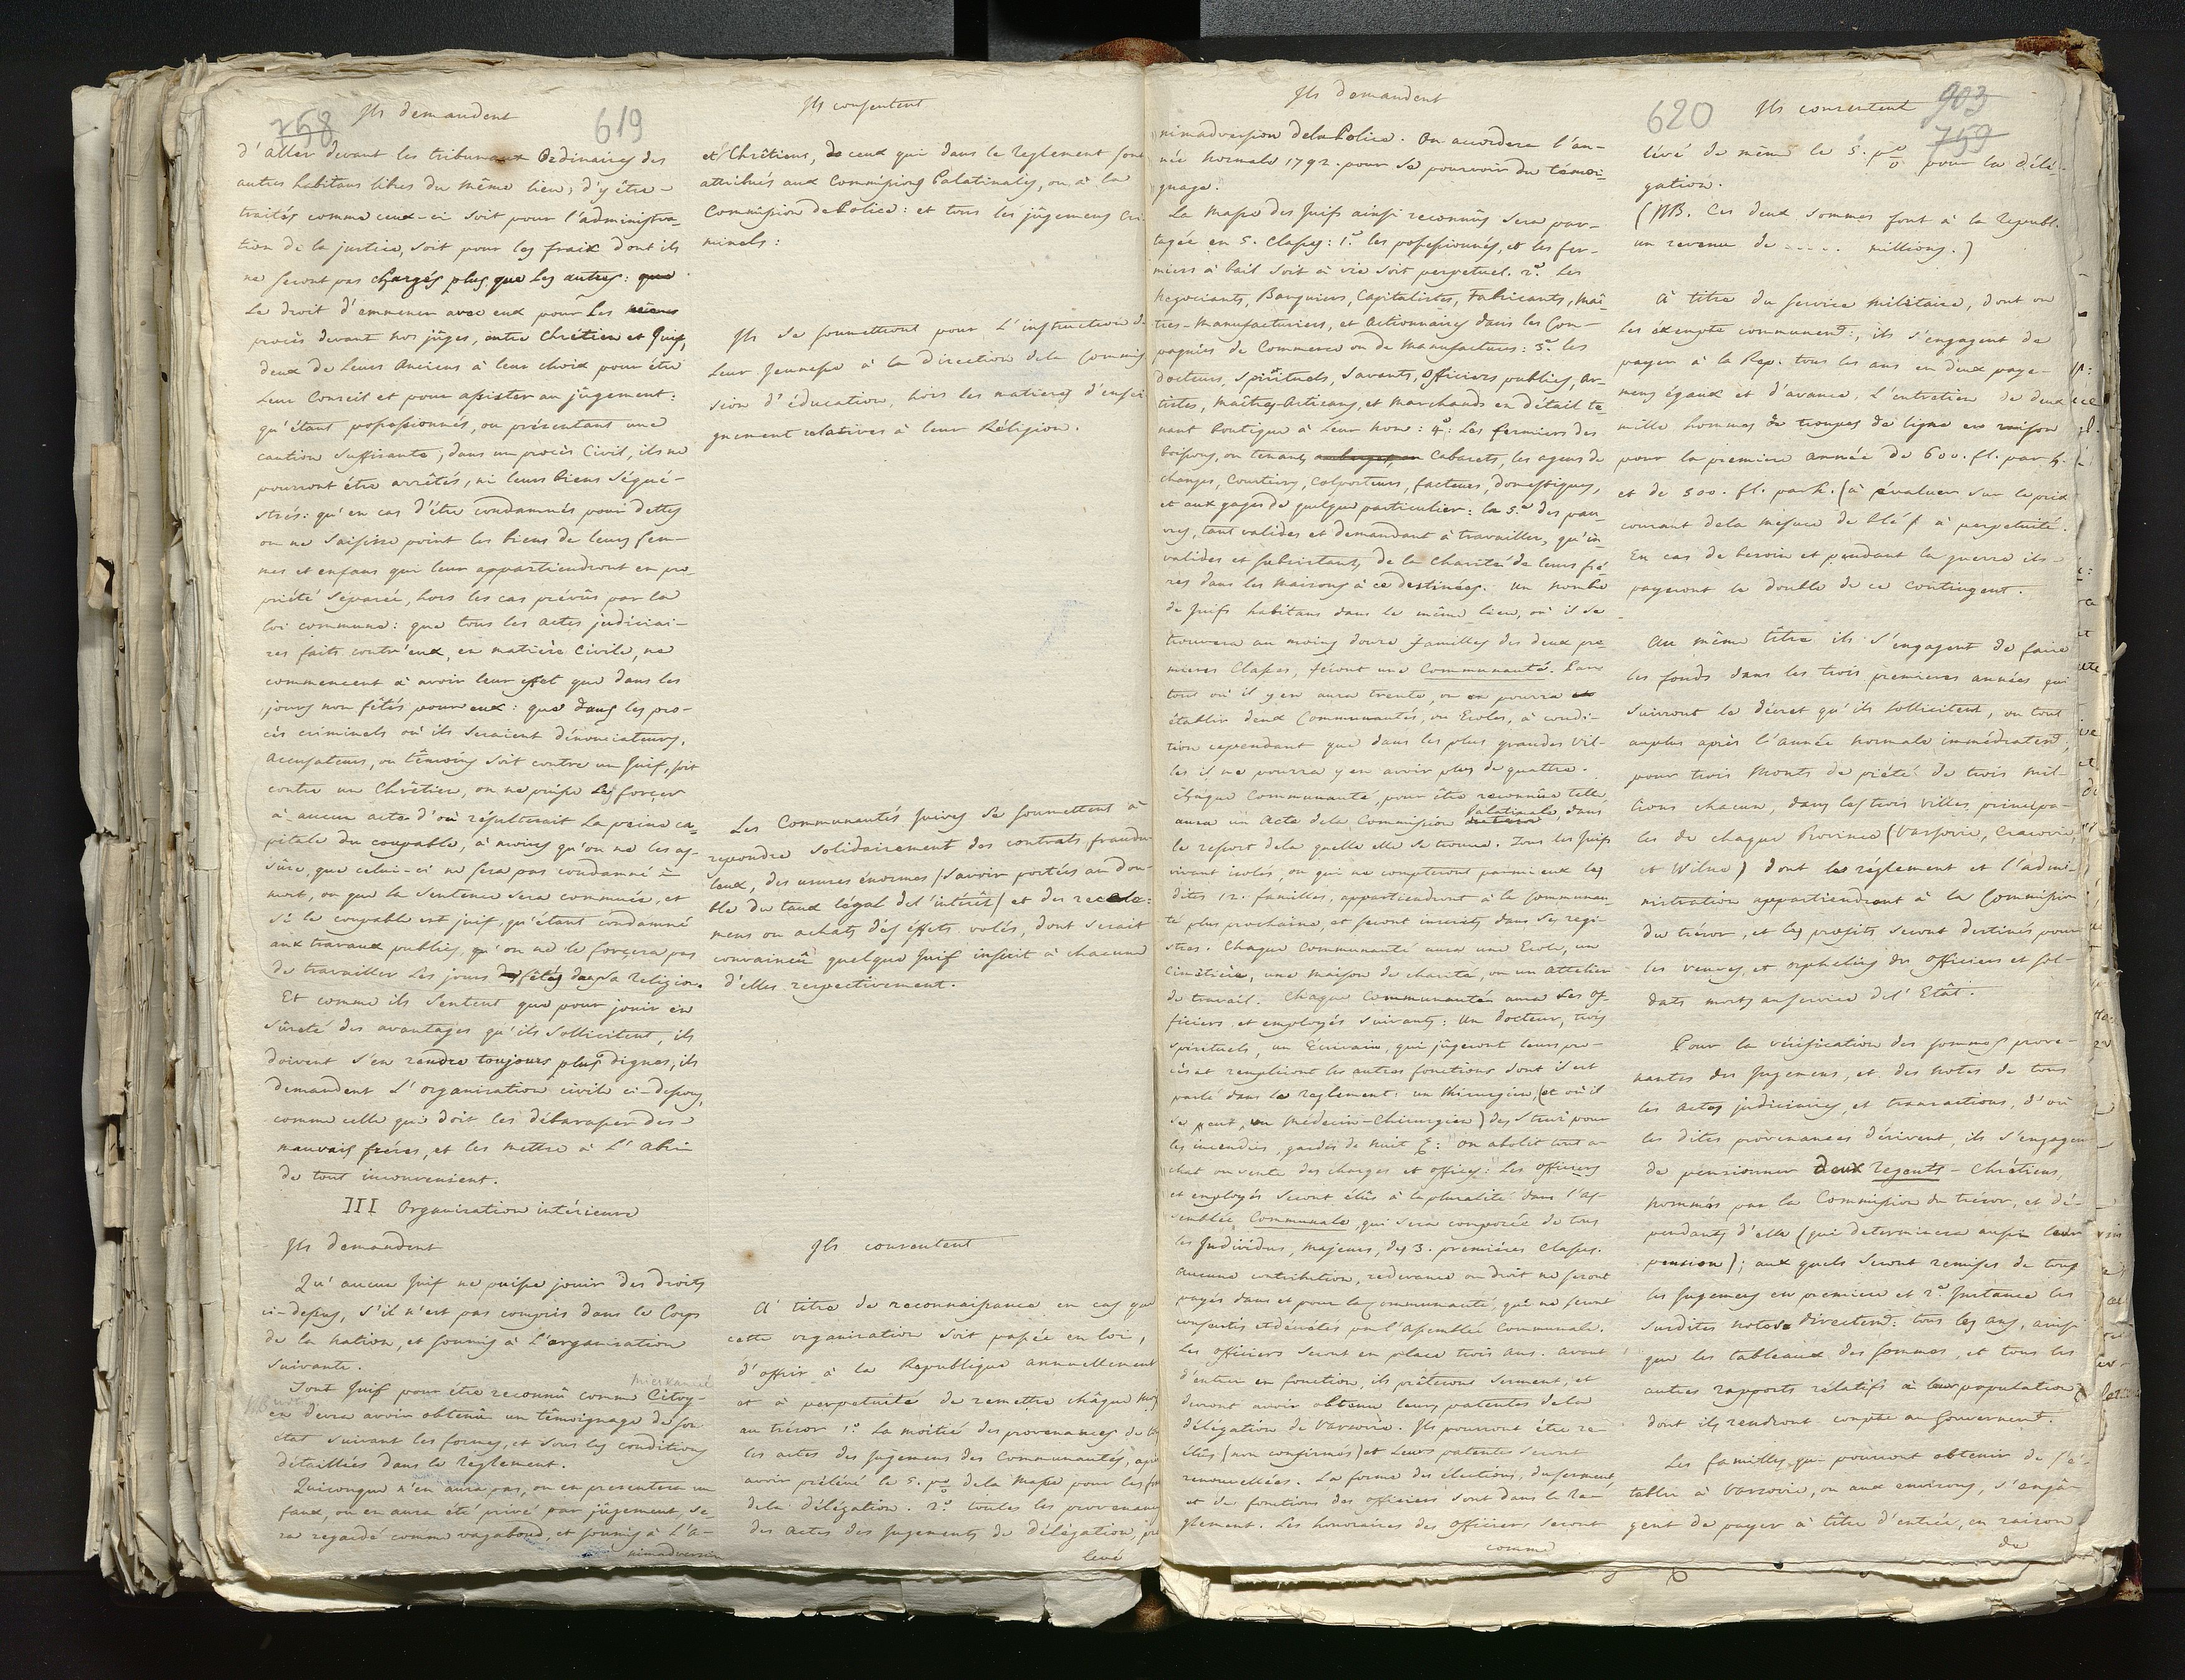 758
Ils demandent
619
d'aller devant les tribunaux Ordinaires des
autres habitans libres du même lieu, d'y être
traités comme ceux-ci soit pour l'administra-
tion de la justice, soit pour les fraix dont ils
ne seront pas chargés plus que les autres: que
Le droit d'emmener avec eux pour les
procès devant nos jûges, entre Chrétien et Juif,
deux de leurs Anciens à leur choix pour être
leur Conseil et pour assister au jûgement:
qu'étant possessionnés, ou présentant une
caution suffisante, dans un procès Civil, ils ne
pourront être arrêtés, ni leurs biens séqué-
strés: qu'en cas d'être condamnés pour dettes
on ne saisisse point les biens de leurs fem-
mes et enfans qui leur appartiendront en pro-
priété séparée, hors les cas prévûs par la
loi commune: que tous les actes judiciai-
res faits contr'eux, en matière Civile, ne
commencent à avoir leur effet que dans les
jours non fêtés pour eux: que dans les pro-
cès criminels où ils seraient dénonciateurs,
Accusateurs, ou têmoins soit contre un Juif, soit
contre un Chrêtien, on ne puisse les forçer
à aucun acte d'où résulterait la peine ca-
pitale du coupable, à moins qu'on ne les as-
sûre, que celui-ci ne sera pas condamné à
mort, ou que la sentence sera commuée, et
si le coupable est juif, qu'étant condamné
aux travaux publics, qu'on ne le forçera pas
de travailler les jours fêtés de sa Religion.
Et comme ils sentent que pour jouir en
sûreté des avantages qu'ils sollicitent, ils
doivent s'en rendre toujours plus dignes, ils
demandent l'organisation civile ci-dessous,
comme celle qui doit les débarasser des
mauvais frères, et les mettre à l'abri
de tout inconvenient.
III Organisation intérieure
Ils demandent
Qu'aucun Juif ne puisse jouir des droits
ci-dessus, s'il n'est pas compris dans le Corps
de la nation, et soumis à l'organisation
suivante.
Tout Juif pour être reconnû comme Citoy-
en devra avoir obtenû un têmoignage de son
état suivant les formes, et sous les conditions
détailliés dans le règlement.
Quiconque n'en aura pas, ou en presentera un
faux, ou en aura été privé par jûgement, se-
ra regardé comme vagabond, et soumis à l'a-
nimadversion
Ils consentent
et Chrêtiens, de ceux qui dans le reglement sont
attribués aux Commissions Palatinales, ou à la
Commission de Police: et tous les jûgemens Cri-
minels:
Ils se soumettront pour l'instruction de
leur Jeunesse à la direction de la Commis-
sion d'éducation, hors les matieres d'ensei-
gnement relatives à leur Réligion.
Les Communautés Juives se soumettent à
repondre solidairement des contrats fraudu-
leux, des usures énormes (savoir portées au dou-
ble du taux légal de l'intérêt) et des recele-
mens ou achats d'és éffets volés, dont serait
convaincû quelque Juif inscrit à chacune
d'elles respectivement.
Ils consentent
A titre de reconnaissance en cas que
cette organisation soit passée en loi,
d'offrir à la Republique annuellement
et à perpetuité de remettre châque
au trésor 1.º La moitié des provenances de
les actes des Jugemens des Communautés, après
avoir prélevé le 5. p% de la Masse pour les
de la délégation. 2.º toutes les provenances
des Actes des Jugements de délégation, pré-
levé
Ils demandent
nimadversion de la Police. On accordera l'an-
née normale 1792. pour se pourvoir du témoi-
gnage.
La Masse des Juifs ainsi reconnûs sera par-
tagée en 5. Classes: 1.º les possessionnés, et les fer-
miers à bail soit à vie soit perpetuel. 2.º Les
Negociants, Banquiers, Capitalistes, Fabricants, Maî-
tres-Manufacturiers, et Actionnaires dans les Com-
pagnies de Commerce ou de Manufactures: 3.º les
docteurs, spirituels, savants, Officiers publics, ar-
tistes, Maîtres-Artisans, et Marchands en détail te-
nant boutique à leur nom: 4.º: Les fermiers des
boissons, ou tenants auberges, ou Cabarets, les agens de
changes, Courtiers, Colporteurs, facteurs, domestiques,
et aux gages de quelque particulier: la 5.e des pau-
vres, tant valides et demandant à travailler, qu'in-
valides et subsistants de la charité de leurs frè-
res dans les maisons à ce destinées. Un nombre
de Juifs habitans dans le même lieu, où il se
trouvera au moins douze familles des deux pre-
mieres Classes, feront une Communauté. Par-
tout où il y en aura trente, on en pourra
établir deux Communautés, ou Ecoles, à condi-
tion cependant que dans les plus grandes Vil-
les il ne pourra y en avoir plus de quattre.
Chaque Communauté, pour être reconnûe telle
aura un Acte de la Commission Palatinale, dans
le ressort de la quelle elle se trouve. Tous les Juifs
vivant isolés, ou qui ne compteront parmi eux les
dites 12. familles, appartiendront à la Communau-
té plus prochaine, et seront inscrits dans ses regi-
stres. Chaque Communauté aura une Ecole, un
Cimétière, une maison de charité, ou un attelier
de travail. Chaque Communauté aura les of-
ficiers et employés suivants: Un docteur, trois
spirituels, un Ecrivain, qui jûgeront leurs pro-
cès et rempliront les autres fonctions dont il est
parlé dans le Reglement: un Chirurgien, (et où il
se peut, un Médecin-Chirurgien) des pour
les incendies, gardes de nuit &: On abolit tout a-
chat ou vente des charges et offices: Les officiers
et employés seront élûs à la pluralité dans l'as-
semblée Communale, qui sera composée de tous
les Individus, majeurs, des 3. premières Classes.
Aucune contribution, redevance ou droit ne seront
payés dans et pour la Communauté, qui ne seront
consentis et décretés par l'Assemblée Communale.
Les officiers seront en place trois ans. Avant
d'entrer en fonction, ils prêteront serment, et
devront avoir obtenu leurs patentes de la
délégation de Varsovie. Ils pourront être re-
élûs (non confirmés) et leurs patentes seront
renouvellées. La forme des élections, du serment,
et des fonctions des officiers sont dans le Ré-
glement. Les honoraires des Officiers seront
comme
620
Ils consentent
903
759
lévé de même le 5. p% pour la délé-
gation.
(NB. Ces deux sommes font à la Republ.
un revenu de .... millions.)
À titre du service militaire, dont on
les éxempte communemt:, ils s'engagent de
payer à la Rep. tous les ans en deux paye-
mens égaux et d'avance, l'entretien de deux
mille hommes de troupes de ligne en raison
pour la premiere année de 600. fl. par h.
et de 500. fl. par h. (à évaluer sur le prix
courant de la mesure de blé) à perpetuité.
En cas de besoin et pendant la guerre ils
payeront le double de ce contingent.
Au même tître ils s'engagent de faire
les fonds dans les trois premieres années qui
suivront le décret qu'ils sollicitent, ou tout
auplus après l'année normale immédiatemt,
pour trois Monts de piété de trois mil-
lions chacun, dans les trois villes principa-
les de chaque Province (Varsovie, Cracovie,
et Wilne) dont les réglement et l'admi-
nistration appartiendront à la Commission
du trésor, et les profits seront destinés pour
les veuves, et orphelins des officiers et sol-
dats morts au service de l'Etât.
Pour la vérification des sommes prove-
nantes des Jugemens, et des notes de tous
les Actes judiciaires, et transactions, d'où
les dites provenances dérivent, ils s'engagent
de pensionner deux régents-Chrétiens,
nommés par la Commission du trésor, et dé-
pendants d'elle (qui determinera aussi leur
pension); aux quels seront remises de tous
les Jugemens en premiere et 2.e Instance les
susdites notes directemt: tous les ans, ainsi
que les tableaux des sommes, et tous les
autres rapports rélatifs à leur population
dont ils rendront compte au Gouvernemt.
Les familles qui pourront obtenir de s'é-
tablir à Varsovie, ou aux environs, s'engâ-
gent de payer à tître d'entrée, en raison
de